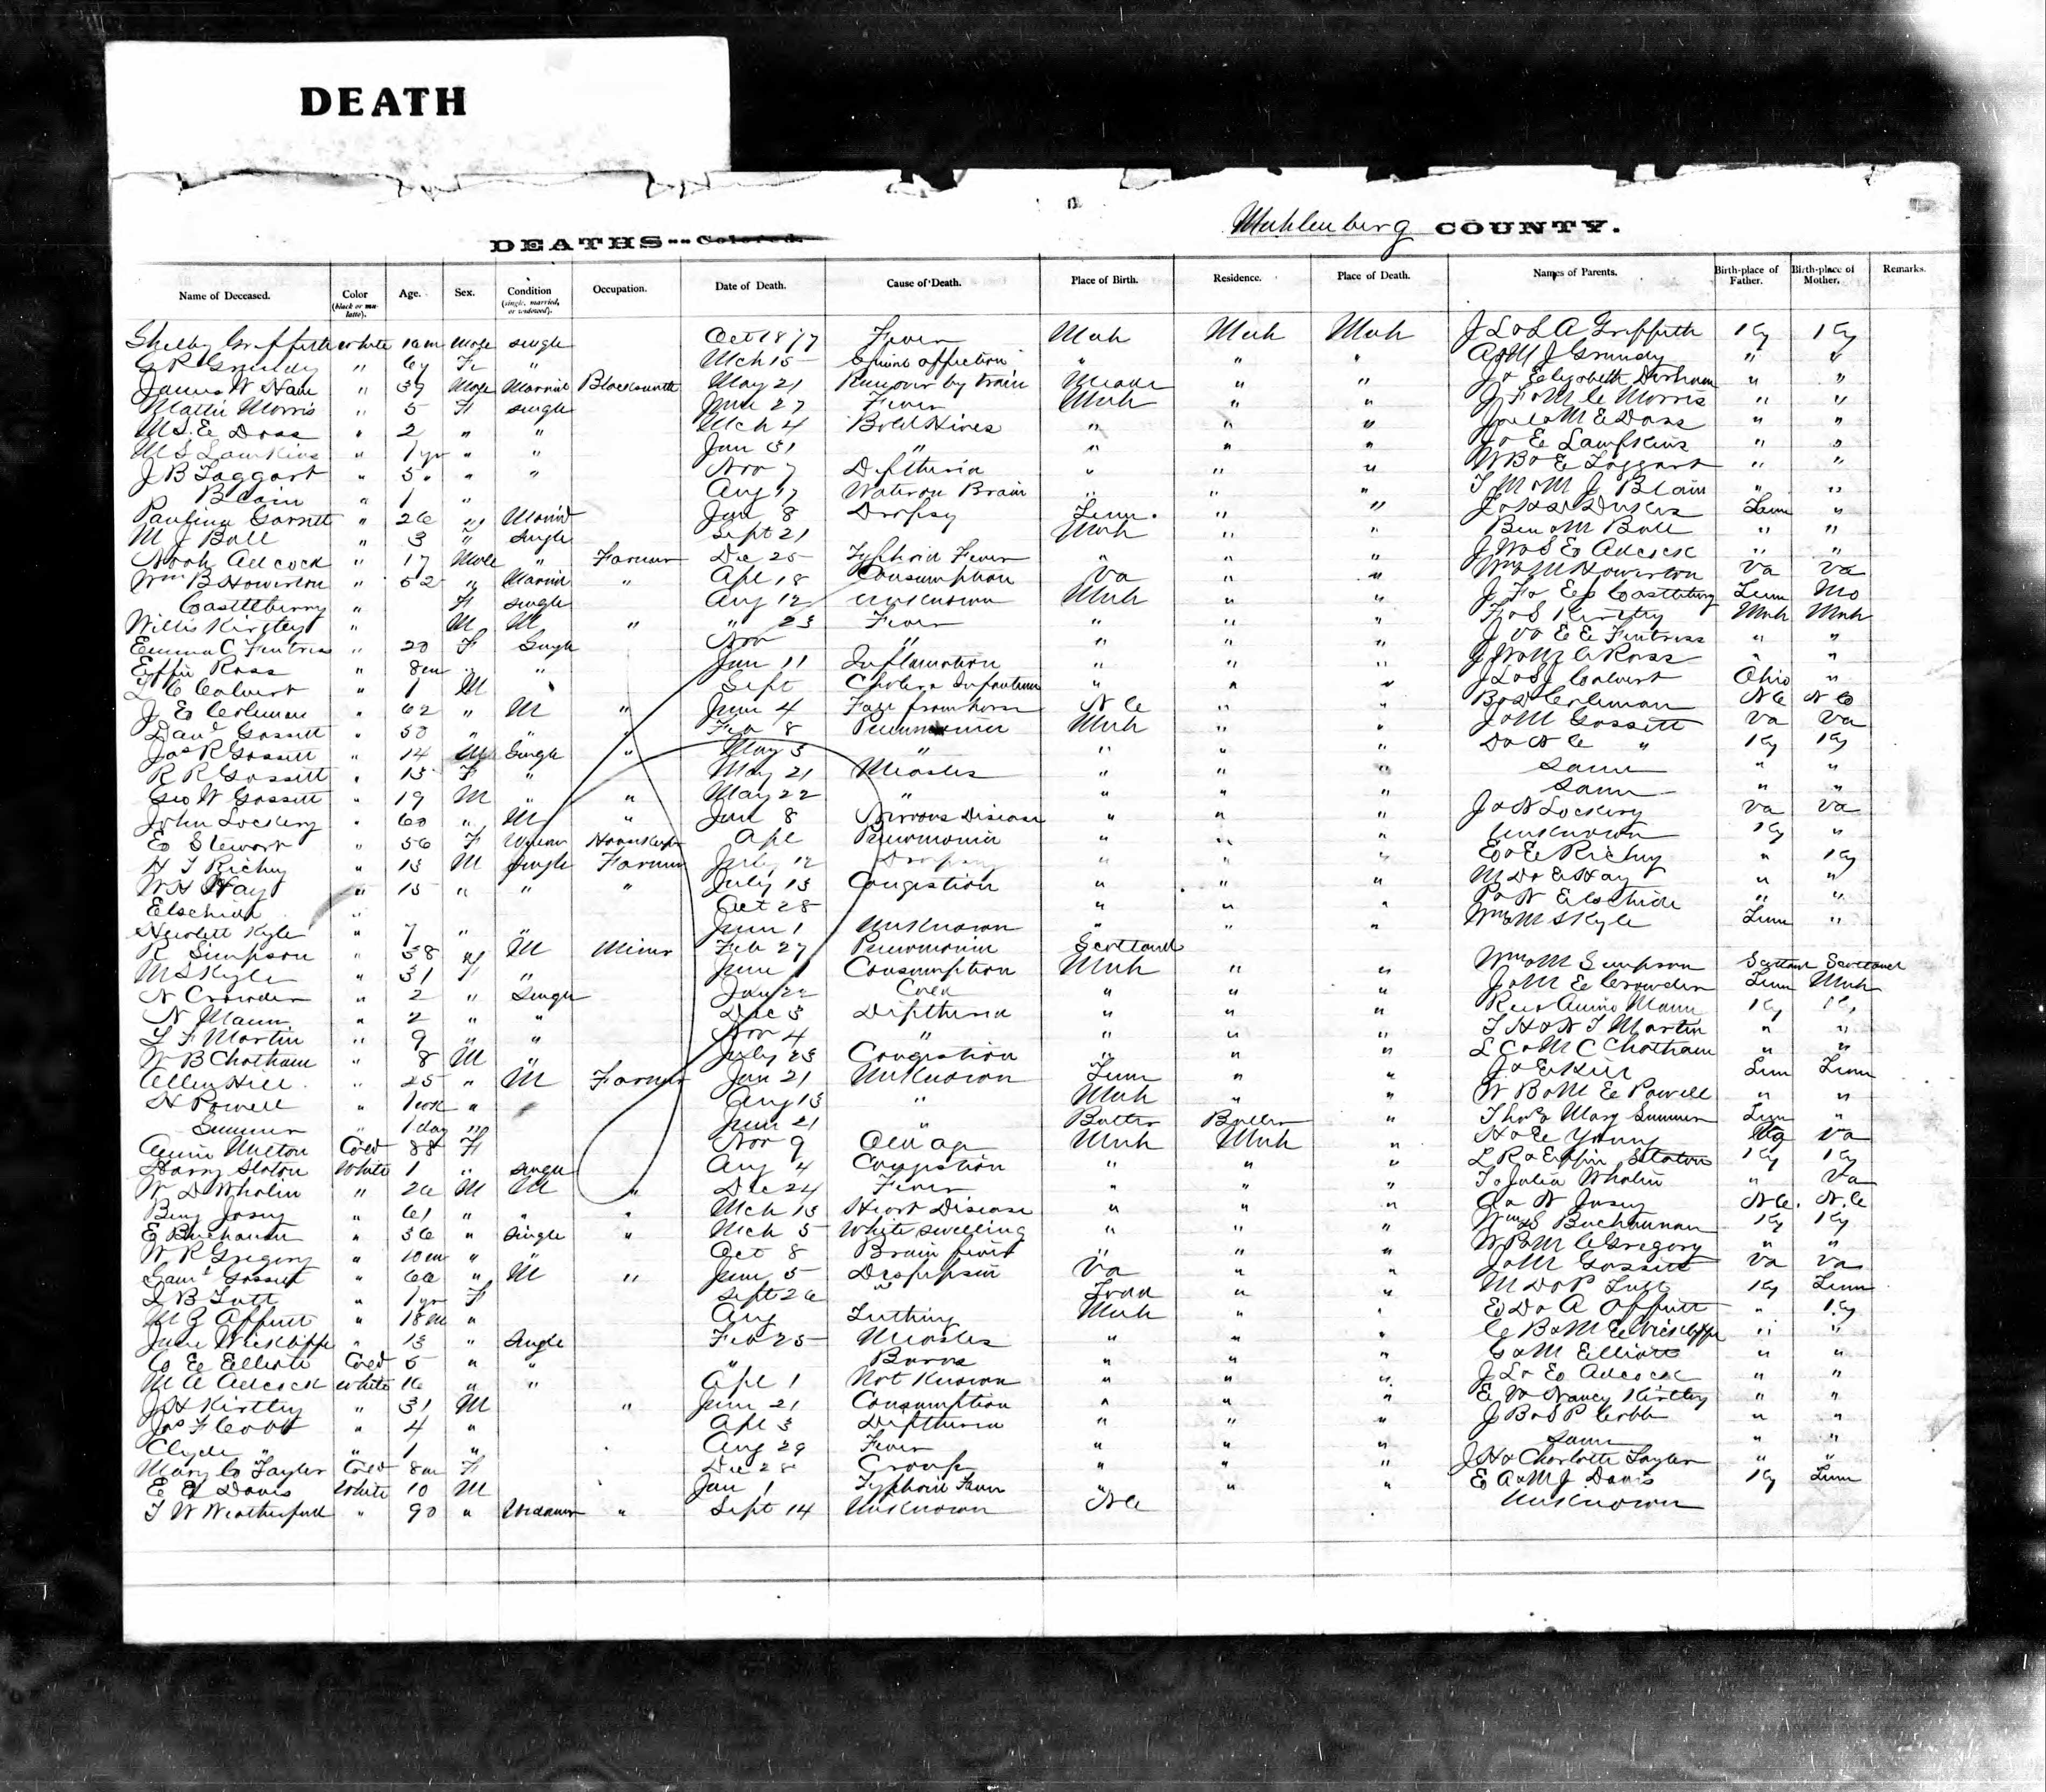 DEATH
DEATHS--Colored. Muhlenberg COUNTY.
Name of Deceased. Color (black or mulatto). Age. Sex. Condition (single, married, or widowed). Occupation. Date of Death. Cause of Death. Place of Birth. Residence. Place of Death. Names of Parents. Birth-place of Father. Birth-place of Mother. Remarks.
Shelby Griffith White 10m Male Single Oct 18 77 Fever Muh Muh Muh J L & L A Griffith Ky Ky
G R Grundy " 6y F " Mch 15 Spinal affection " " " A J & M J Grundy " "
James W Ham " 39 Male Married Blacksmith May 21 Runover by train Meade " " J & Elizabeth " "
Mattie Morris " 5 F Single June 27 Fever Muh " " J F & M C Morris " "
M S E Doss " 2 " " Mch 4 Bold Hives " " " Joel & M E Doss " "
M S Lamkins " 1yr " " Jan 31 " " " " J & E Lampkins " "
J B Taggart " 5 " " Nov 7 Diptheria " " " W B & E Taggart " "
Blain " 1 " Aug 17 Water on Brain " " " T M & M J Blain " "
Paulina Garrett " 26 " Married Jan 8 Dropsy Tenn. " " Tenn "
M J Ball " 3 " Single Sept 21 Muh " " Ben & M Ball " "
Noah Adcock " 17 Male " Farmer Dec 25 Typhoid Fever " " " J W & S E Adcock " "
Wm B Howerton " 52 " Married " Apl 18 Consumption Va " " Wm & M Howerton Va Va
Castleberry " F Single Aug 12 Unknown Muh " " J F & E J Castleberry Tenn Mo
Willis Kirtley " M M " " 23 Fever " " " F & S Kirtley Muh Muh
Emma C Fentress " 20 F Single Nov " " " " J V & E E Fentress " "
Effie Ross " 8m " " Jan 11 Inflamation " " " J W & M C Ross " "
L C Calvert " 1 M " Sept Cholera Infantum " " " J L & S J Calvert Ohio "
J E Coleman " 62 " M " June 4 Fall from horse N C " " B & D Coleman N C N C
Danl Gossett " 50 " " " Feb 8 Pneumonia Muh " " J & M Gossett Va Va
Jas R Gossett " 14 M Single " May 3 " " " " D & N C " Ky Ky
R R Gossett " 15 F " May 21 Measles " " " Same " "
Geo W Gossett " 19 M " " May 22 " " " " Same " "
John Lockery " 60 " M " Jan 8 Nervous Disease " " " J & N Lockery Va Va
E Stewart " 56 F Widow Housekeeper Apl Pneumonia " " " Unknown Ky "
H T Richey " 13 M Single Farmer July 12 Dropsy " " " E & E Richey " Ky
W H Hay " 15 " " " July 13 Congestion " " " M D & E Hay " "
Elschide " Oct 28 " " " P & N Elschide " "
Hewlett Kyle " 7 " " June 1 Unknown " " " Wm & M S Kyle Tenn "
R Simpson " 38 M M Miner Feb 27 Pneumonia Scotland Wm & M Simpson Scotland Scotland
M S Kyle " 31 F " June 1 Consumption Muh " " J & M E Crowder Tenn Muh
N Crowder " 2 " Single Jan 22 Cold " " " Mann Ky Ky
N Mann " 2 " " Dec 3 Diptheria " " " T H & N T Martin " "
L F Martin " 9 " " Nov 4 " " " " L C & M C Chatham " "
W B Chatham " 8 M " July 23 Congestion " " " J & E Hill Tenn Tenn
Allen Hill " 25 " M Farmer Jan 21 Unknown Tenn " " W B & M E Powell " "
H Powell " 1wk " Aug 13 " Muh " "
Summer " 1 day " June 21 " Butler Butler " Thos & Mary Summer Tenn "
Annie Melton Cold 88 F Nov 9 Old age Muh Muh " H & E Young Va Va
Harry Slaton White 1 " Single Aug 4 Congestion " " " L R & Effie Slaton Ky Ky
W D Wholin " 26 M M " Dec 24 Fever " " " T & Julia Wholin " Va
Benj Josey " 61 " " " Mch 13 Heart Disease " " " & N Josey N C. N.C
E Buchanan " 36 " Single " Mch 5 White Swelling " " " Wm & S Buchannan Ky Ky
W R Gregory " 10m " " Oct 8 Brain fever " " " W P & M C Gregory " "
Saml Gossett " 60 " M " June 5 Despepsia Va " " J & M Gossett Va Va
I B Tutt " 1yr F Sept 26 " Todd " " M D & P Tutt Ky Tenn
M Z Offutt " 18m " Aug Teething Muh " " E D & A Offutt " Ky
June Wickliffe " 13 " Single Feb 25 Measles " " " C B & M E Wickliffe " "
C E Elliott Cold 5 " " " Burns " " " G & M Elliott " "
M A Adcock White 16 " " Apl 1 Not Known " " " J L & E Adcock " "
J H Kirtley " 31 M " June 21 Consumption " " " E W & Nancy Kirtley " "
Jas F Cobb " 4 " Apl 3 Diptheria " " " J B & S P Cobb " "
Clyde " " 1 " Aug 29 Fever " " " Same " "
Mary C Taylor Cold 8m F Dec 28 Croup " " " J H & Charlotte Taylor " "
E E Davis White 10 M Jan 1 Typhoid Fever " " " E A & M J Davis Ky Tenn
T W Weatherford " 90 " Widower " Sept 14 Unknown N C " Unknown